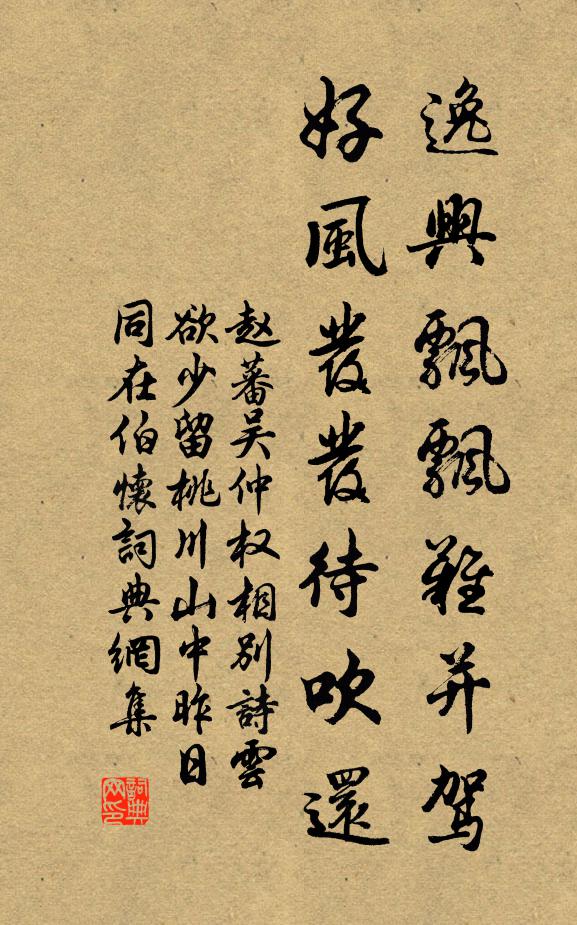 逸興飄飄難并駕
好風發發待吹還
赵蕃吴仲权相别詩雲
欲少留桃川山中昨日
同在伯懷詞典網集
詞典网印